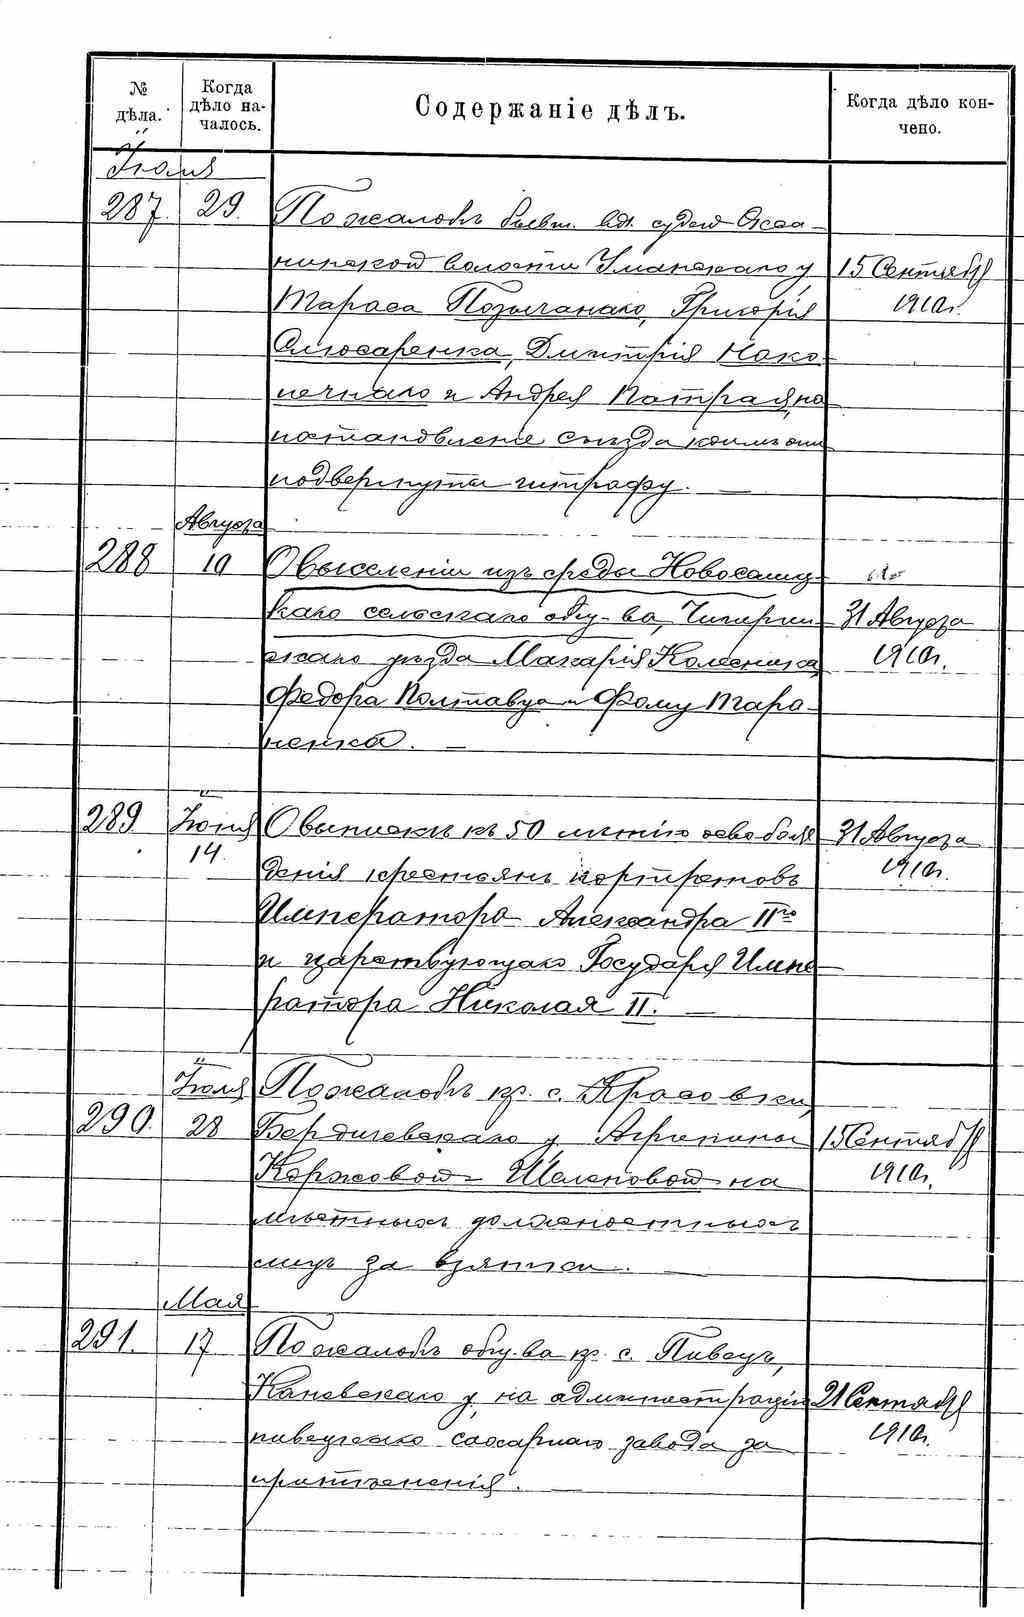 № дѣла.
Когда дѣло началось.
Содержаніе дѣлъ.
Когда дѣло кончено.
Іюля
287. 29. По жалобѣ бывш. вол. судей Оксанинской волости Уманскаго у.
Тараса Позычанаго, Григорія
Слюсаренка, Дмитрія Наконечнаго и Андрея Патрая, на
постановленіе съѣзда коимъ они
подвергнуты штрафу. —
15 Сентября
1910 г.
Августа
288 10 О выселеніи изъ среды Новоселицкаго сельскаго общ-ва, Чигиринскаго уѣзда Макарія Колесника,
Федора Полтавца и Фому Тараненка. —
31 Августа
1910 г.
289 Іюня
14. О выпискѣ къ 50 лѣтію освобождения крестьянъ портретовъ
Императора Александра IIго
и царствующаго Государя Императора Николая II. —
31 Августа
1910 г.
Іюля
290. 28 По жалобѣ кр. с. Красовки,
Бердичевскаго у. Агрипины
Коржовой-Шелеповой на
мѣстныхъ должностныхъ
лицъ за взятки. —
15 Сентября
1910 г.
Мая
291. 17 По жалобѣ общ-ва кр. с. Пивецъ,
Каневскаго у, на администрацію
пивецкаго сахарнаго завода за
притѣсненія. —
21 Сентября
1910 г.